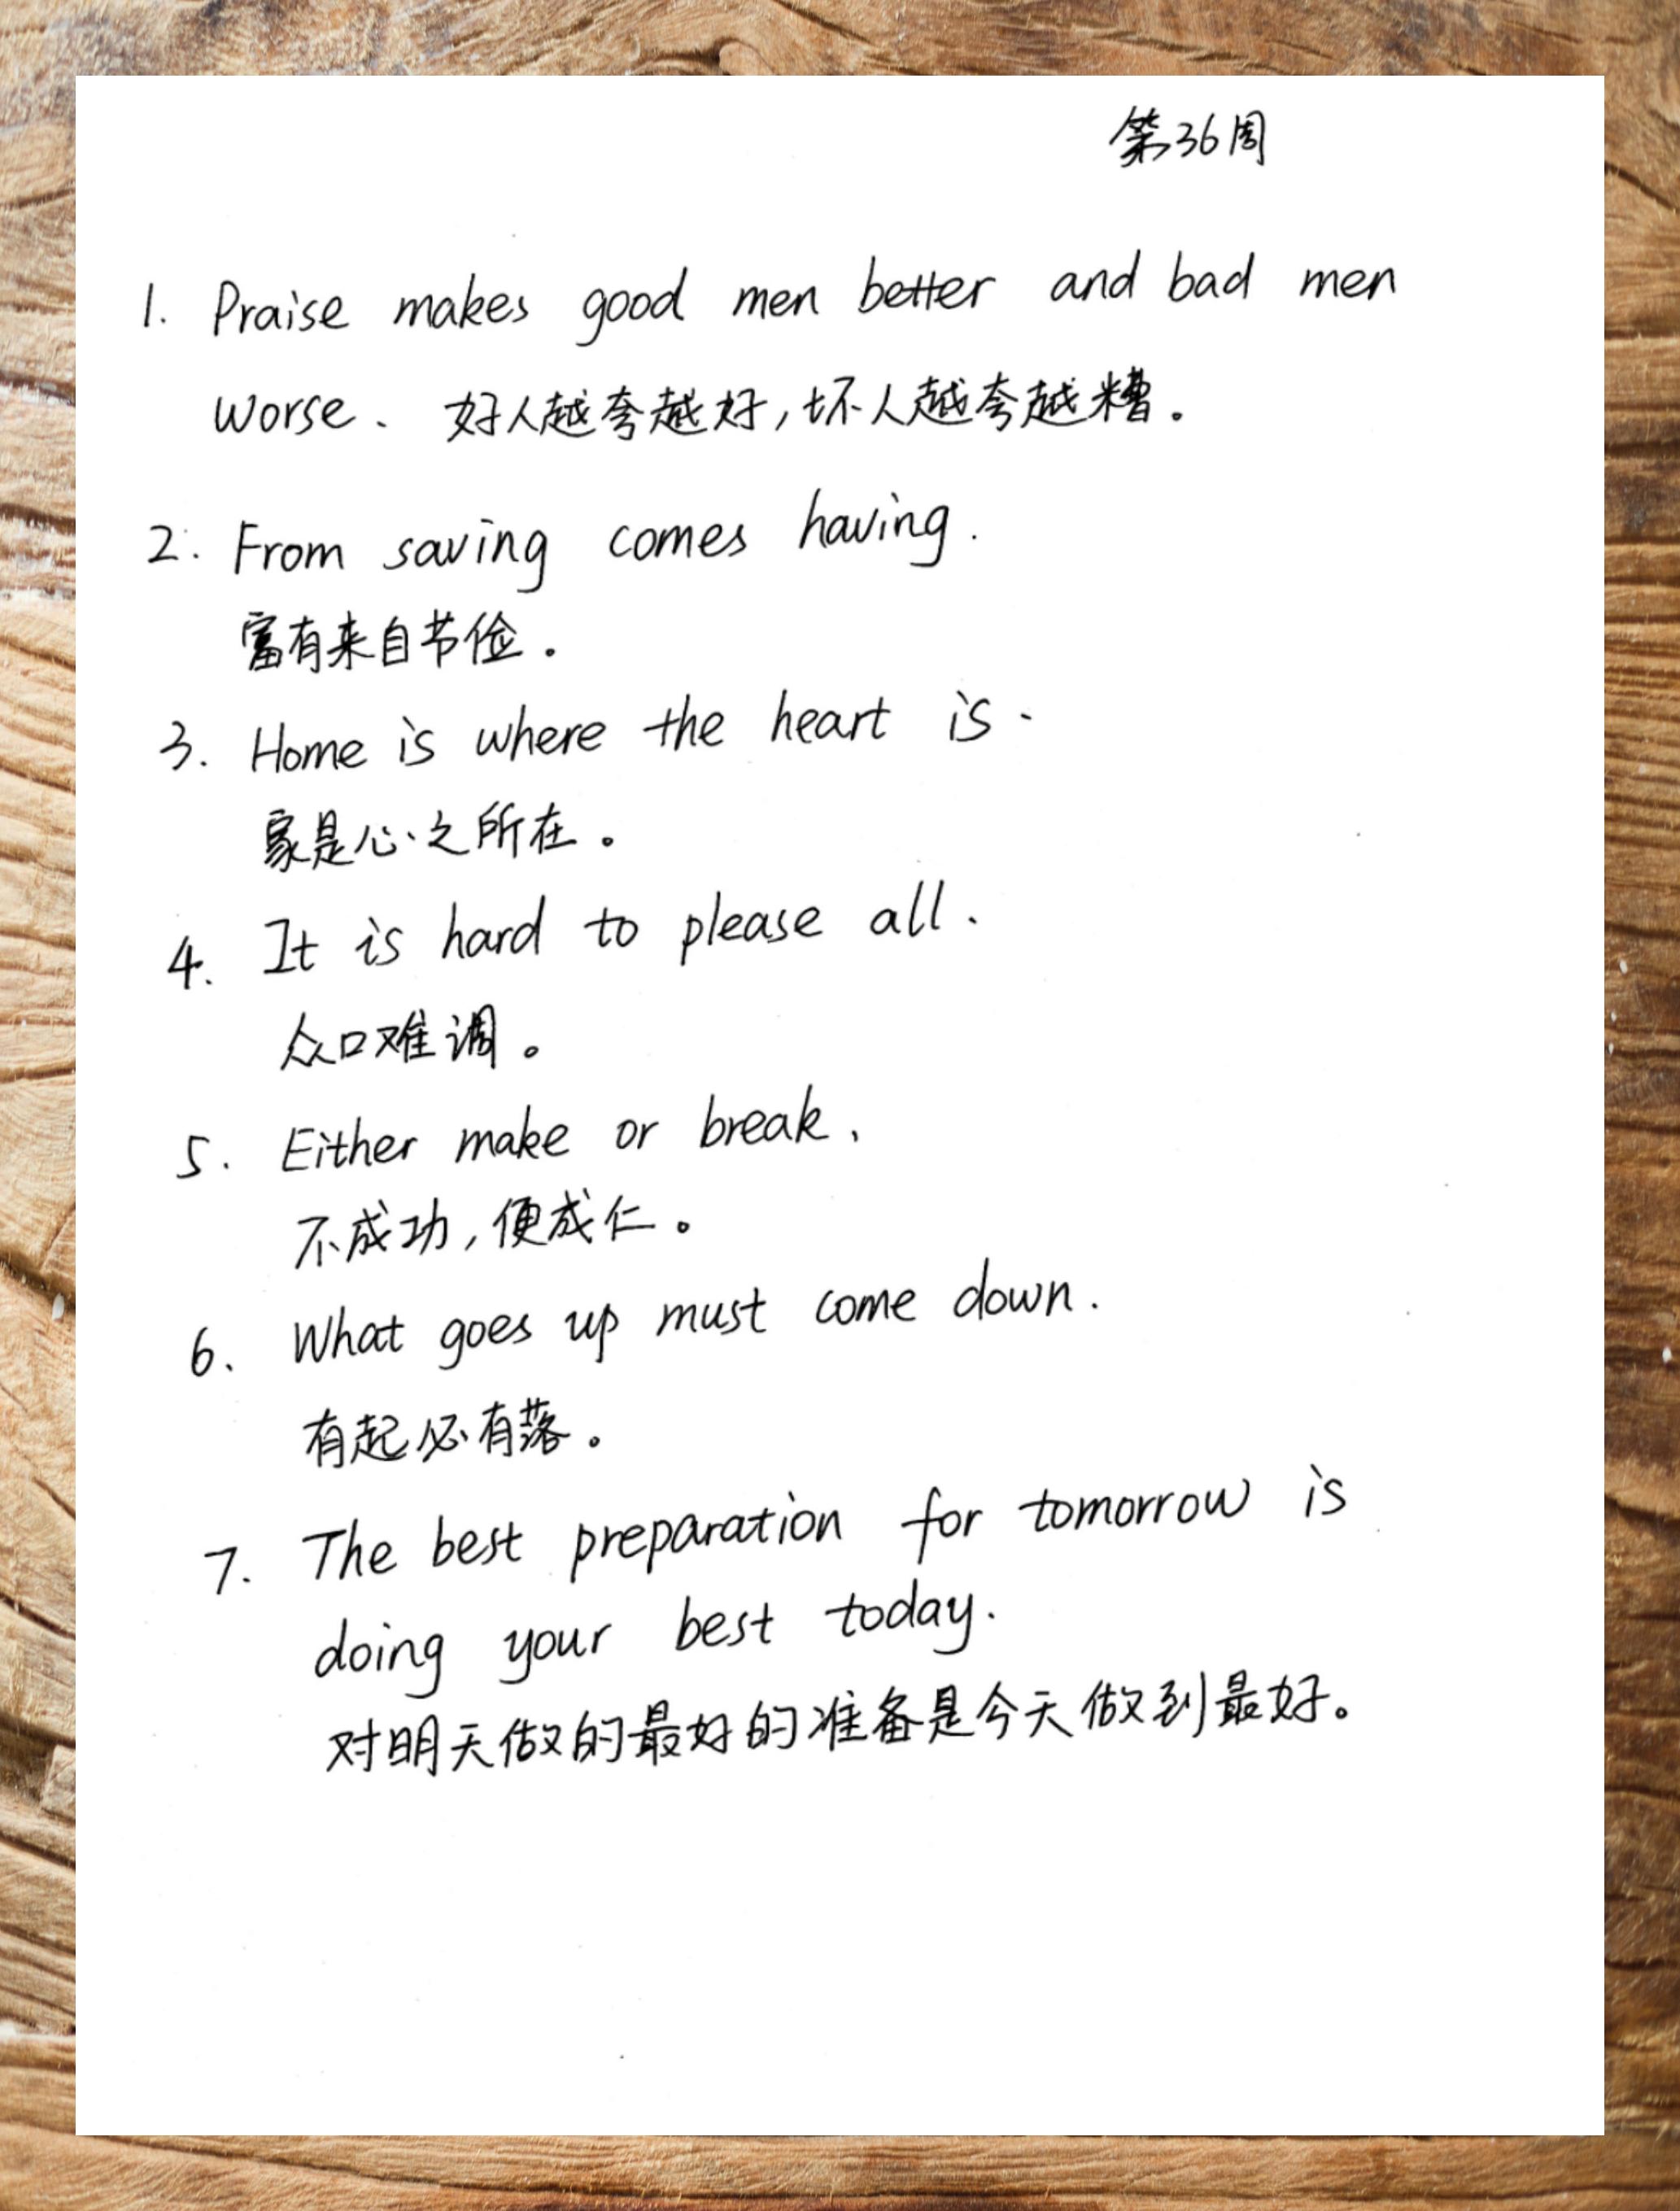 第36周
1. Praise makes good men better and bad men
worse. 好人越夸越好,坏人越夸越糟。
2. From saving comes having.
富有来自节俭。
3. Home is where the heart is.
家是心之所在。
4. It is hard to please all.
众口难调。
5. Either make or break.
不成功,便成仁。
6. What goes up must come down.
有起必有落。
7. The best preparation for tomorrow is
doing your best today.
对明天做的最好的准备是今天做到最好。